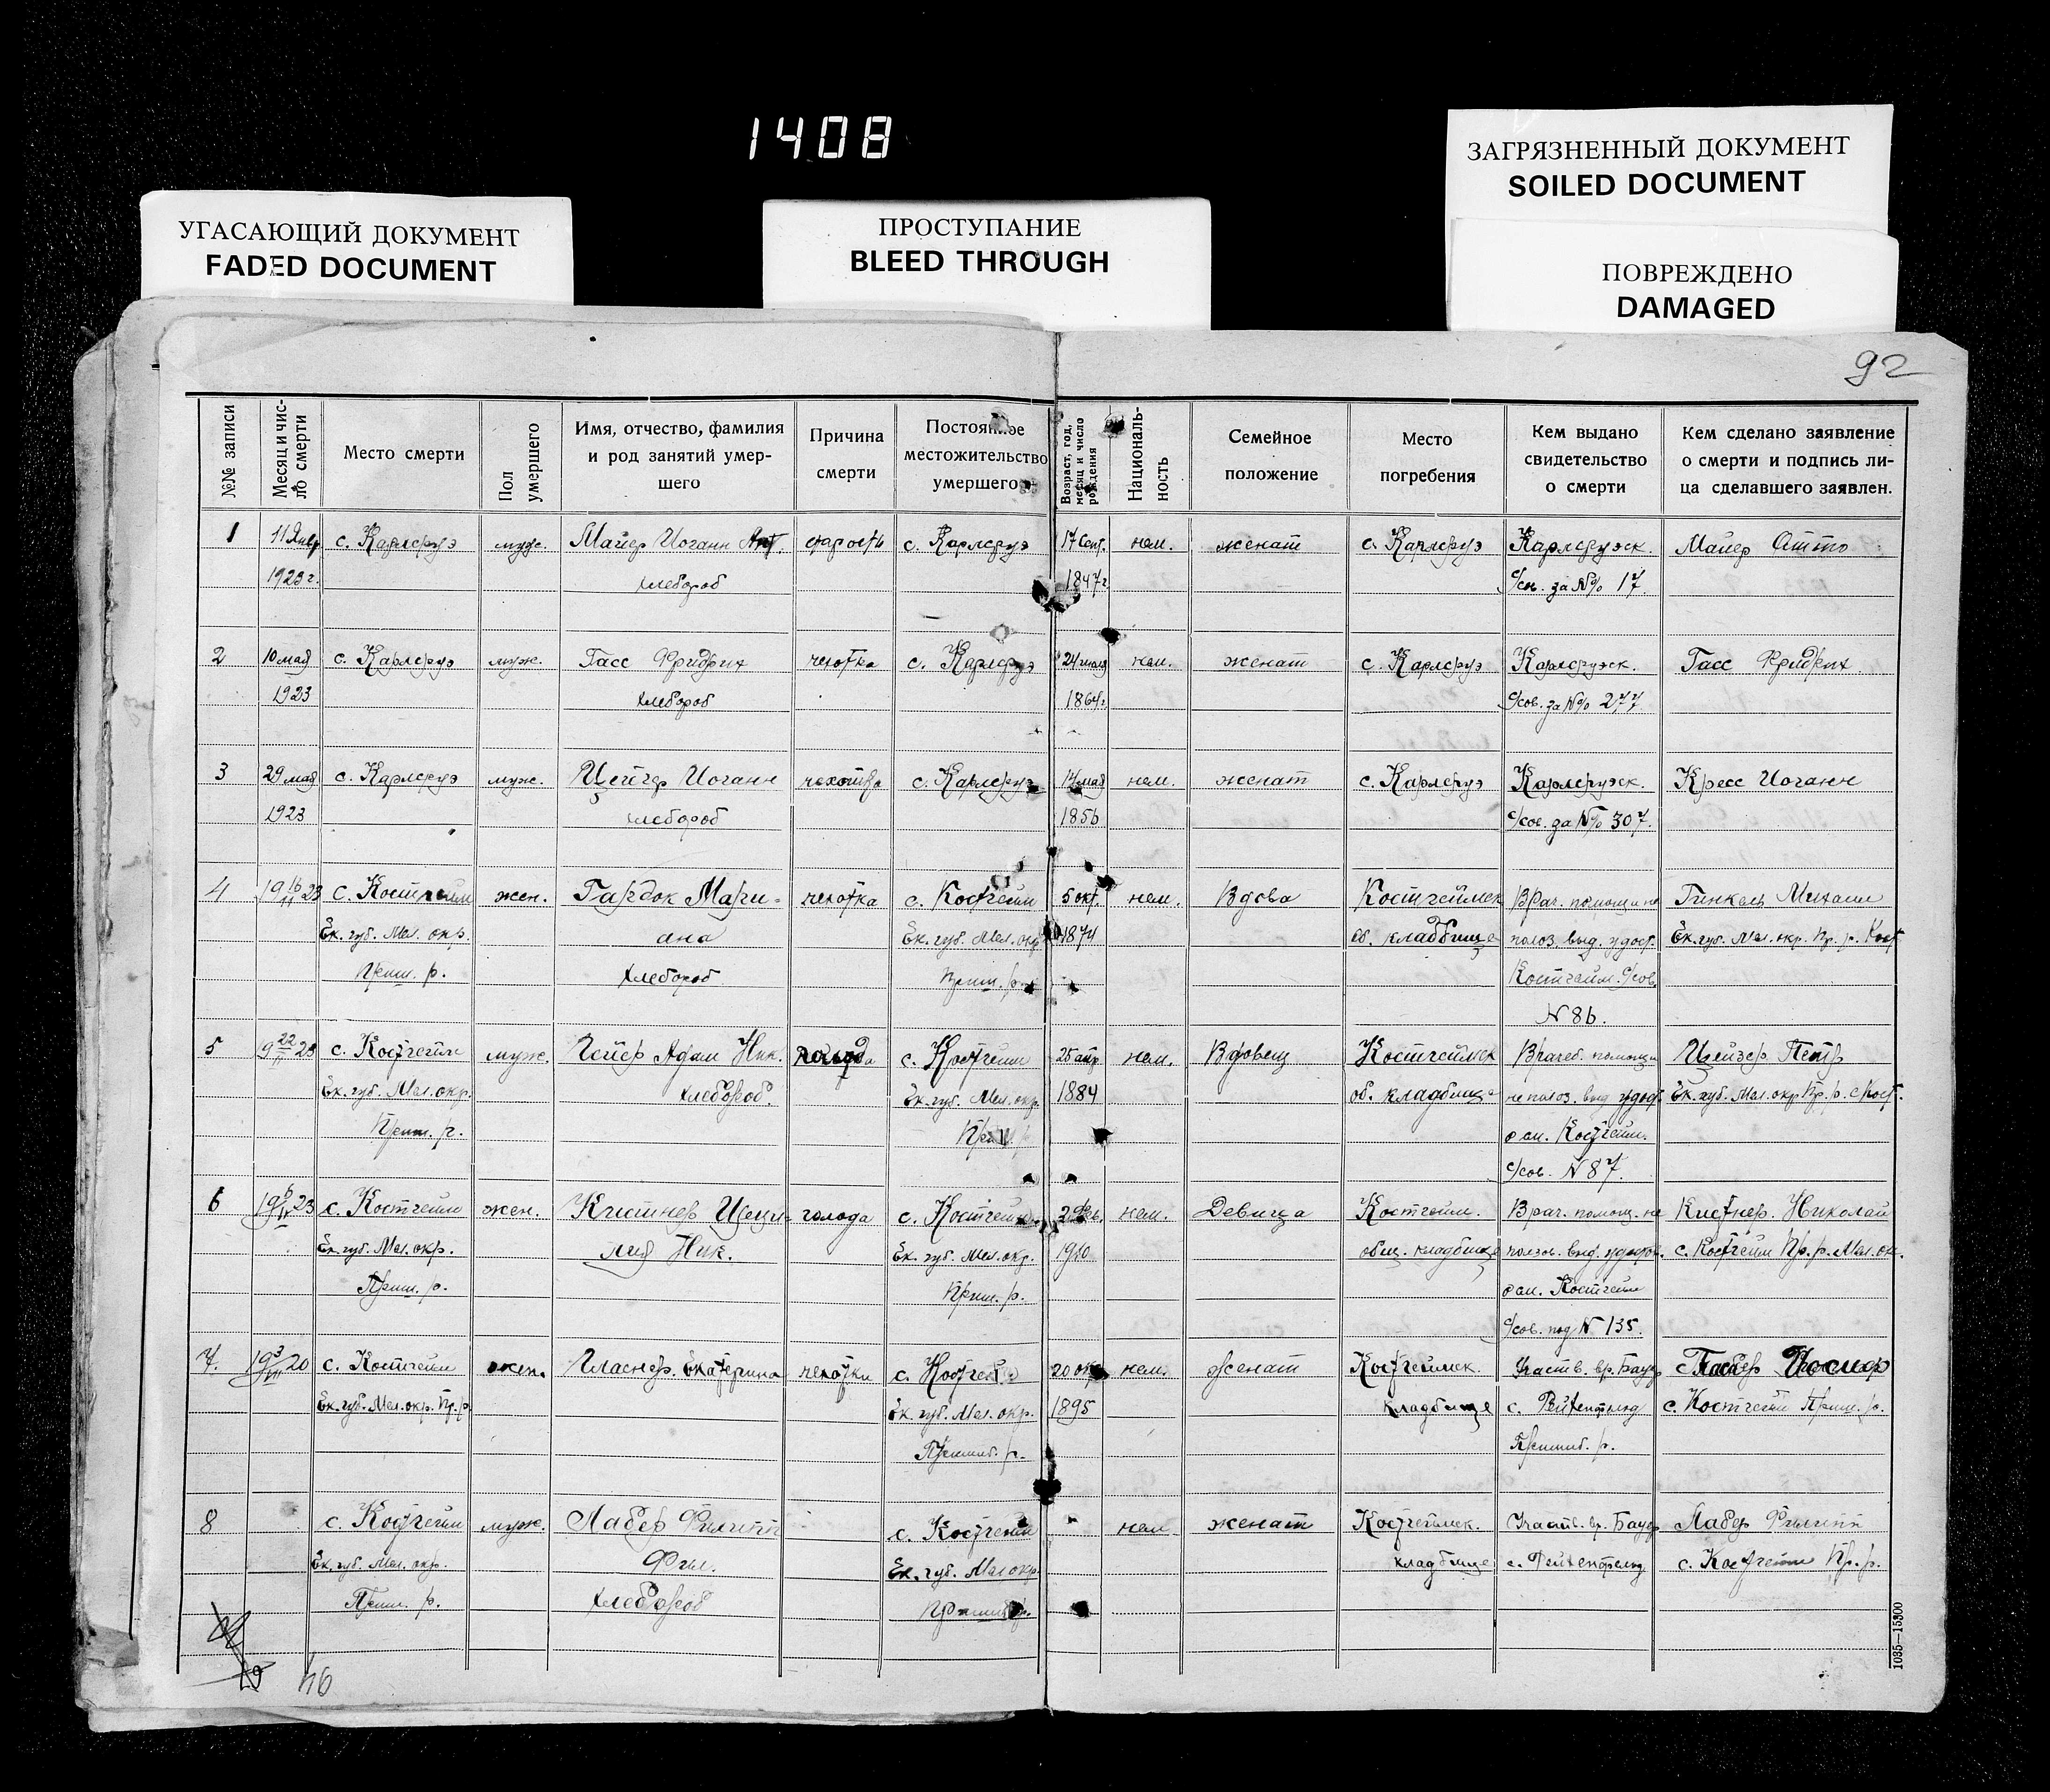 1408
ЗАГРЯЗНЕННЫЙ ДОКУМЕНТ
SOILED DOCUMENT
УГАСАЮЩИЙ ДОКУМЕНТ
FADED DOCUMENT
ПРОСТУПАНИЕ
BLEED THROUGH
ПОВРЕЖДЕНО
DAMAGED
92
№№ записи
Месяц и чис-
ло смерти
Место смерти
Пол
умершего
Имя, отчество, фамилия
и род занятий умер-
шего
Причина
смерти
Постоянное
местожительство
умершего
Возраст, год,
месяц и число
рождения
Националь-
ность
Семейное
положение
Место
погребения
Кем выдано
свидетельство
о смерти
Кем сделано заявление
о смерти и подпись ли-
ца сделавшего заявлен.
1 11 Янв с. Карлсруэ муж. Майер Иоганн Ант. старость с. Карлсруэ 17 Сент. нем. женат с. Карлсруэ Карлсруэск. Майер Отто
1923 г. хлебороб 1847 г. с/сов. за № 17
2 10 мая с. Карлсруэ муж. Гасс Фридрих чехотка с. Карлсруэ 24 июля нем. женат с. Карлсруэ Карлсруэск. Гасс Фридрих
1923 хлебороб 1864 г. с/сов. за № 277
3 29 мая с. Карлсруэ муж. Цейгер Иоганн чехотка с. Карлсруэ 14 мая нем. женат с. Карлсруэ Карлсруэск. Кресс Иоганн
1923 хлебороб 1856 с/сов. за № 307.
4 19 16/II 23 с. Костгейм жен. Гардок Мари- чехотка с. Костгейм 5 окт. нем. Вдова Костгеймск Врач. помощи не Гинкель Михаил
Ек. губ. Мел. окр. ана Ек. губ. Мел. окр 1874 об. кладбище полоз. выд. удост. Ек. губ. Мел. окр. Пр. р. Кост
Приш. р. хлебороб Приш. р. Костгейм. с/сов.
№ 86.
5 19 22/II 23 с. Костгейм муж. Гейер Адам Ник. с. Костгейм 25 апр нем. Вдовец Костгеймск Врачеб. помощи Цейзер Петр
Ек. губ. Мел. окр. хлебороб. Ек. губ. Мел. окр. 1884 об. кладбище не полоз. выд удост. Ек. губ. Мел. окр Пр. р. с Кост.
Приш. р. Приш. р. Костгейм.
с/сов. № 87.
6 23 с. Костгейм жен. Кистнер Цеци- голода с. Костгейм нем. Девица Костгейм. Врач. помощ. не Кистнер. Николай
Ек. губ. Мел. окр. лия Ник. Ек. губ. Мел. окр. общ. кладбище выд. удост. с. Костгейм Пр. р. Мел. ок.
Приш. р. Приш. р. Костгейм
с/сов. под № 135.
7. 19 3/VII 20 с. Костгейм жен. Гласнер. Екатерина чехотки с. Костгейм 20 окт нем. женат Костгеймск. Участв. вр. Бауэр Иосиф
Ек. губ. Мел. окр. Пр. р. Ек. губ. Мел. окр. 1895 кладбище с. Рейхенфельд с. Костгейм Приш. р.
Пришиб. р. Пришиб. р.
8 с. Костгейм муж. Ладер Филипп с. Костгейм нем. женат Костгеймск. Участв. вр. Бауэр Ладер Филипп
Ек. губ. Мел. окр. Фил. Ек. губ. Мел окр. кладбище с. Рейхенфельд с. Костгейм Пр. р.
Приш. р. хлебороб Пришиб. р.
46
1035—15300